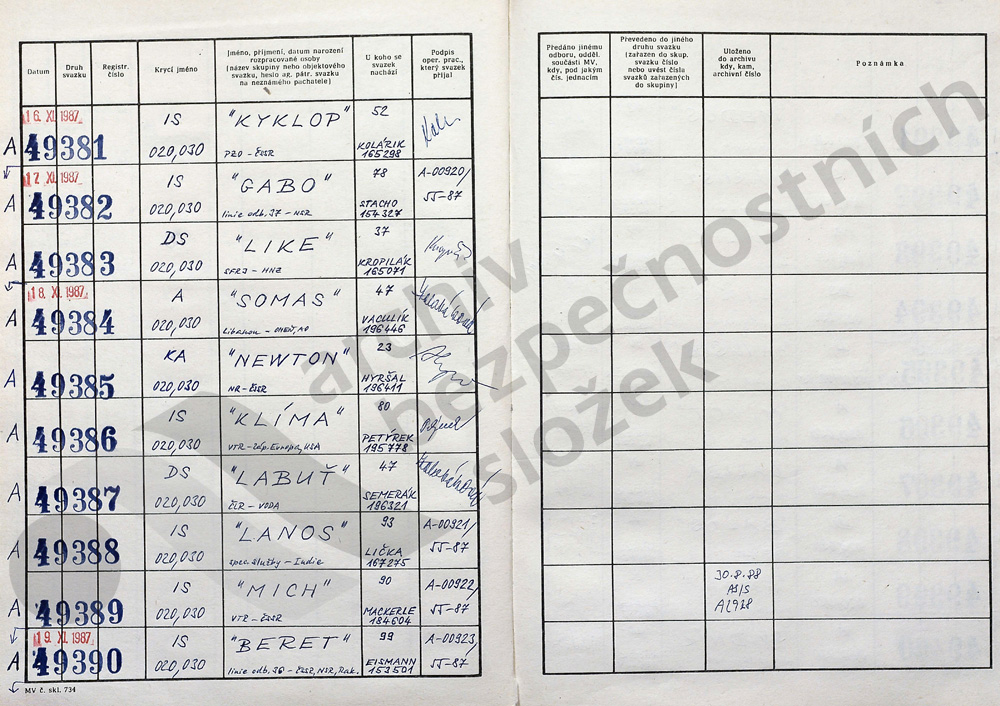 Datum
Druh svazku
Registr. číslo
Krycí jméno
Jméno, příjmení, datum narození
rozpracované osoby
(název skupiny nebo objektového
svazku, heslo ag. pátr. svazku
na neznámého pachatele)
U koho se
svazek
nachází
Podpis
oper. prac.,
který svazek
přijal
Předáno jinému
odboru, odděl.
součásti MV,
kdy, pod jakým
čís. jednacím
Převedeno do jiného
druhu svazku
(zařazen do skup.
svazku číslo
nebo uvést čísla
svazků zařazených
do skupiny)
Uloženo
do archivu
kdy, kam,
archivní číslo
Poznámka
16. XI. 1987
IS "KYKLOP" 52
A 49381 020,030 PZO - ČSSR KOLÁRIK
165298
17. XI. 1987
IS "GABO" 78 A-00920/
A 49382 020,030 linie odb. 37 - NSR STACHO 55-87
154327
DS "LIKE" 37
A 49383 020,030 SFRJ - HNZ KROPILÁK
165071
18. XI. 1987
A "SOMAS" 47
A 49384 020,030 VACULÍK
196446
KA "NEWTON" 23
A 49385 020,030 NR - ČSSR HYRŠAL
196411
IS "KLÍMA" 80
A 49386 020,030 VTR - záp. Evropa, USA PETÝREK
195778
DS "LABUŤ" 47
A 49387 020,030 ČSR - VODA SEMERÁK
196321
IS "LANOS" 93 A-00921/
A 49388 020,030 spec. služby - Indie LIČKA 55-87
167275
IS "MICH" 90 A-00922/
A 49389 020,030 VTR - ČSSR MACKERLE 55-87
184604
30.8.88
19. XI. 1987
IS "BERET" 99 A-00923/
A 49390 020,030 linie odb. 36 - ČSSR, NSR, Rak. EISMANN 55-87
153501
MV č. skl. 734
archiv
bezpečnostních
složek